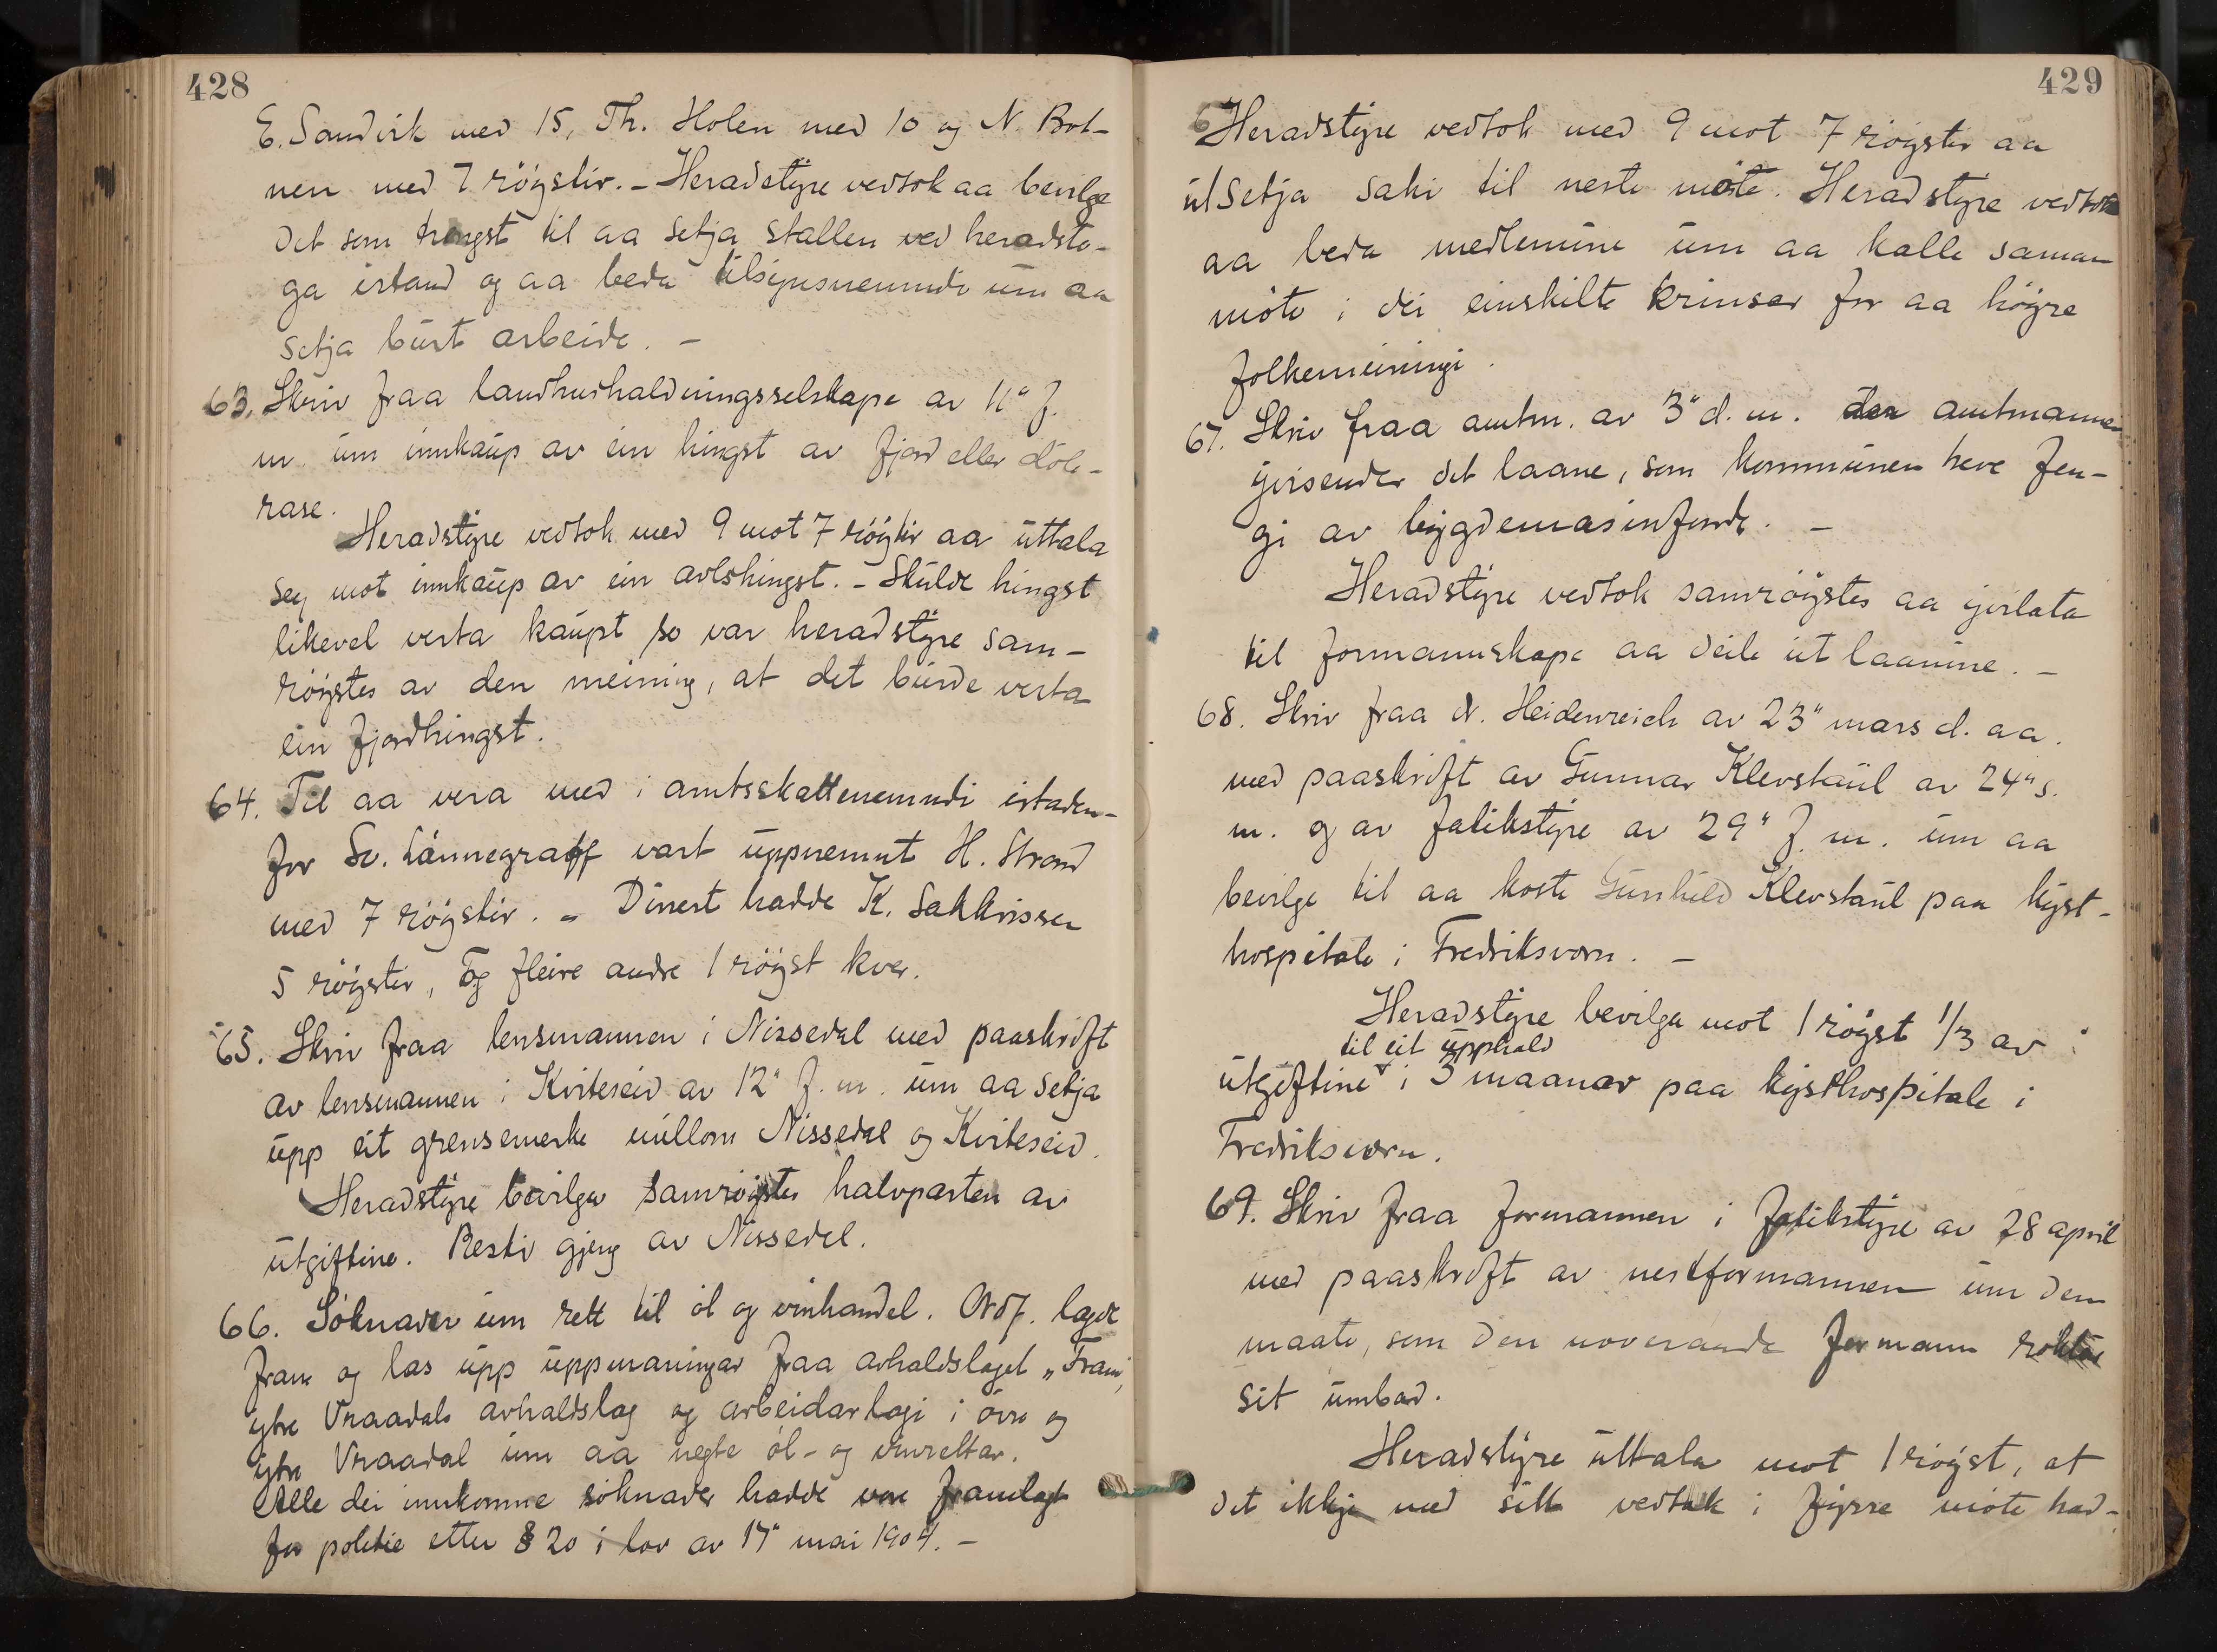 428
E. Sandvik med 15, Th. Holen med 10 og N. Bot-
nen med 7 röyster. - Heradstyre vedtok aa bevilge
det som trengst til aa setja stallen ved heradsto-
ga istand og aa beda tilsynsnemndi um aa
setja burt arbeide. -
63. Skriv fraa landhushaldningsselskape av 11" f.
m. um innkaup av ein hingst av fjord eller döle-
rase.
Heradstyre vedtok med 9 mot 7 röyster aa uttala
seg mot innkaup av ein avlshingst. - Skulde hingst
likevel verta kaupt so var heradstyre sam-
röystes av den meining, at det burde verta
ein fjordhingst.
64. Til aa vera med i amtsskattenemndi istaden-
for Sv. Lännegraff vart uppnemnt H. Strand
med 7 röyster. - Dinest hadde K. Sakkrissen
5 röyster, og fleire andre 1 röyst kver.
65. Skriv fraa lensmannen i Nissedal med paaskrift
av lensmannen i Kviteseid av 12" f. m. um aa setja
upp eit grensemerke millom Nissedal og Kviteseid.
Heradstyre bevilga samröystes halvparten av
utgiftine. Resti gjeng av Nissedal.
66. Söknader um rett til öl og vinhandel. Ordf. lagde
fram og las upp uppmaningar fraa avhaldslaget "Fram",
ytre Vraadals avhaldslag og arbeidarlagi i övre og
ytre Vraadal um aa negte öl- og vinrettar.
Alle dei innkomne söknader hadde vore framlagt
for politie etter § 20 i lov av 17" mai 1904. -
429
Heradstyre vedtok med 9 mot 7 röyster aa
utsetja saki til neste möte. Heradstyre vedtok
aa beda medlemine um aa kalle saman
möte i dei einskilte krinsar for aa höyre
folkemeiningi.
67. Skriv fraa amtm. av 3" d. m. der amtmannen
yvisender det laane, som kommunen heve fen-
gi av bygdemasinfonde. -
Heradstyre vedtok samröystes aa yvirlata
til formannskape aa deile ut laanine. -
68. Skriv fraa d. Heidenreich av 23" mars d. aa.
med paaskrift av Gunnar Klevstaul av 24" s.
m. og av fatikstyre av 29" f. m. um aa
bevilge til aa koste Gunhild Klevstaul paa kyst-
hospitale i Fredriksvern. -
Heradstyre bevilga mot 1 röyst 1/3 av
til eit upphald
utgiftine i 3 maanar paa kysthospitale i
Fredriksvern.
69. Skriv fraa formannen i fatikstyre av 28 april
med paaskrift av nestformannen um den
maate, som den noverande formann röktar
sit umbod.
Heradstyre uttala mot 1 röyst, at
det ikkje med sitt vedtak i fyrre möte had-